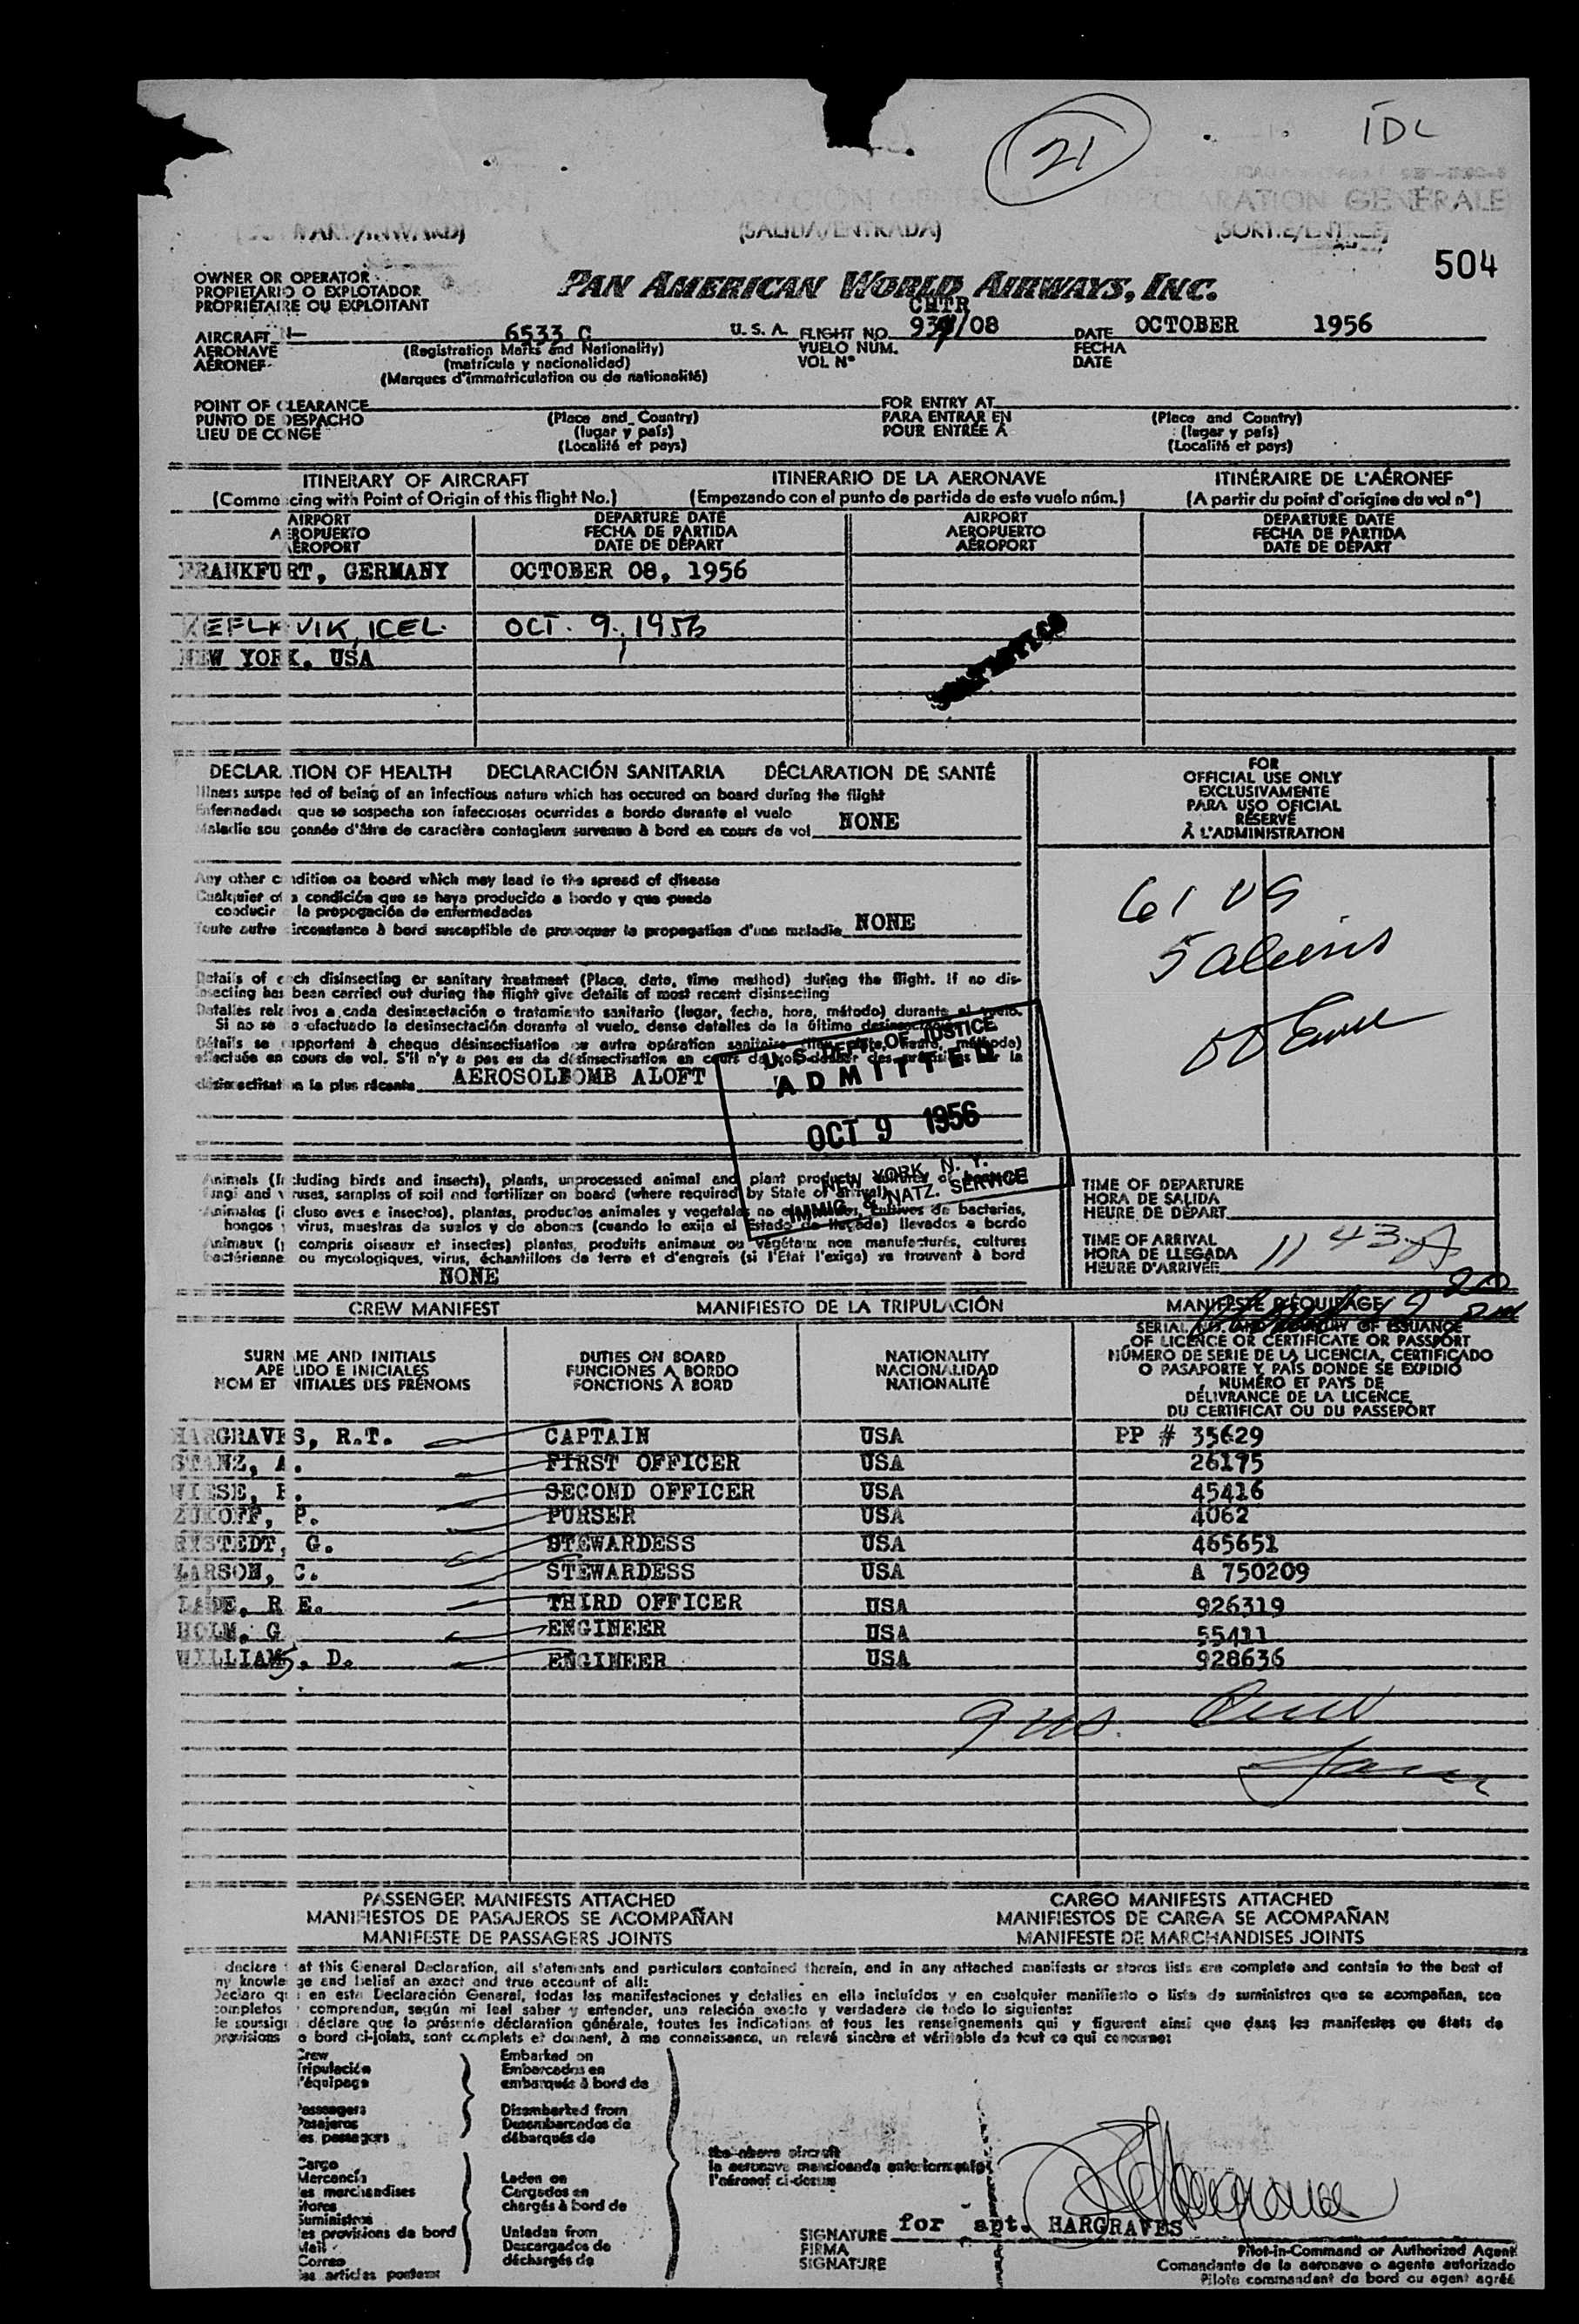 21
IDL
DECLARATION GENERALE
(SALIDA/ENTRADA)
(SORTIE/ENTREE)
504
OWNER OR OPERATOR
PROPIETARIO O EXPLOTADOR
PROPRIÉTAIRE OU EXPLOITANT
PAN AMERICAN WORLD AIRWAYS, INC.
CHTR
AIRCRAFT N- 6533 C U. S. A. FLIGHT NO. /08 DATE OCTOBER 1956
AERONAVE (Registration Marks and Nationality) VUELO NÚM. FECHA
AÉRONEF (matrícula y nacionalidad) VOL Nº DATE
(Marques d'immatriculation ou de nationalité)
POINT OF CLEARANCE FOR ENTRY AT
PUNTO DE DESPACHO (Place and Country) PARA ENTRAR EN (Place and Country)
LIEU DE CONGÉ (lugar y país) POUR ENTRÉE À (lugar y país)
(Localité et pays) (Localité et pays)
ITINERARY OF AIRCRAFT ITINERARIO DE LA AERONAVE ITINÉRAIRE DE L'AÉRONEF
(Comme cing with Point of Origin of this flight No.) (Empezando con el punto de partida de este vuelo núm.) (A partir du point d'origine du vol nº)
AIRPORT DEPARTURE DATE AIRPORT DEPARTURE DATE
AEROPUERTO FECHA DE PARTIDA AEROPUERTO FECHA DE PARTIDA
AÉROPORT DATE DE DÉPART AÉROPORT DATE DE DÉPART
FRANKFURT, GERMANY OCTOBER 08, 1956
KEFLAVIK, ICEL. OCT. 9, 1956
NEW YORK, USA
DECLAR TION OF HEALTH DECLARACIÓN SANITARIA DÉCLARATION DE SANTÉ
Illness suspe ted of being of an infectious nature which has occured on board during the flight
Enfermedades que se sospecha son infecciosas ocurridas a bordo durante el vuelo
Maladie sou çonnée d'être de caractère contagieux survenue à bord en cours de vol NONE
FOR
OFFICIAL USE ONLY
EXCLUSIVAMENTE
PARA USO OFICIAL
RÉSERVÉ
À L'ADMINISTRATION
Any other c ndition on board which may lead to the spread of disease
Cualquier ot a condición que se haya producido a bordo y que pueda
conducir a la propogación de enfermedades
Toute autre circonstance à bord susceptible de provoquer la propagation d'une maladie NONE
61 US
5 aliens
Details of each disinsecting or sanitary treatment (Place, date, time method) during the flight. If no dis-
insecting has been carried out during the flight give details of most recent disinsecting
Detalles relativos a cada desinsectación o tratamiento sanitario (lugar, fecha, hora, método) durante el vuelo.
Si no se ha efactuado la desinsectación durante el vuelo, dense detalles de la última desinsectación
Détails se rapportant à chaque désinsectisation ou autre opération sanitaire (lieu, date, heure, méthode)
effectuée en cours de vol. S'il n'y a pas eu de désinsectisation en cours de vol donner des précisions sur la
désinsectisation la plus récente AEROSOLBOMB ALOFT
U. S. DEPT. OF JUSTICE
ADMITTED
OCT 9 1956
NEW YORK, N. Y.
IMMIG. & NATZ. SERVICE
Animals (Including birds and insects), plants, unprocessed animal and plant products, cultures of bacteria,
fungi and viruses, samples of soil and fertilizer on board (where required by State of arrival)
Animales (incluso aves e insectos), plantas, productos animales y vegetales no elaborados, cultivos de bacterias,
hongos y virus, muestras de suelos y de abonos (cuando lo exija el Estado de llegada) llevados a bordo
Animaux (y compris oiseaux et insectes) plantes, produits animaux ou végétaux non manufacturés, cultures
bactériennes ou mycologiques, virus, échantillons de terre et d'engrais (si l'Etat l'exige) se trouvant à bord
NONE
TIME OF DEPARTURE
HORA DE SALIDA
HEURE DE DÉPART
TIME OF ARRIVAL
HORA DE LLEGADA 11 43 A
HEURE D'ARRIVÉE
CREW MANIFEST MANIFIESTO DE LA TRIPULACIÓN MANIFESTE D'ÉQUIPAGE
SURNAME AND INITIALS DUTIES ON BOARD NATIONALITY SERIAL NO. AND COUNTRY OF ISSUANCE
APELLIDO E INICIALES FUNCIONES A BORDO NACIONALIDAD OF LICENCE OR CERTIFICATE OR PASSPORT
NOM ET INITIALES DES PRÉNOMS FONCTIONS À BORD NATIONALITÉ NÚMERO DE SERIE DE LA LICENCIA, CERTIFICADO
O PASAPORTE Y PAÍS DONDE SE EXPIDIÓ
NUMÉRO ET PAYS DE
DÉLIVRANCE DE LA LICENCE,
DU CERTIFICAT OU DU PASSEPORT
HARGRAVES, R.T. CAPTAIN USA PP # 35629
STANZ, A. FIRST OFFICER USA 26175
WIESE, SECOND OFFICER USA 45416
ZUKOFF, P. PURSER USA 4062
RYSTEDT, G. STEWARDESS USA 465651
LARSON, C. STEWARDESS USA A 750209
LADE, R E. THIRD OFFICER USA 926319
HOLM, G ENGINEER USA 55411
WILLIAMS, D. ENGINEER USA 928636
9 US. Crew
PASSENGER MANIFESTS ATTACHED CARGO MANIFESTS ATTACHED
MANIFIESTOS DE PASAJEROS SE ACOMPAÑAN MANIFIESTOS DE CARGA SE ACOMPAÑAN
MANIFESTE DE PASSAGERS JOINTS MANIFESTE DE MARCHANDISES JOINTS
declare that this General Declaration, all statements and particulars contained therein, and in any attached manifests or stores lists are complete and contain to the best of
my knowledge and belief an exact and true account of all:
Declaro que en esta Declaración General, todas las manifestaciones y detalles en ella incluídos y en cualquier manifiesto o lista de suministros que se acompañan, son
completos y comprenden, según mi leal saber y entender, una relación exacta y verdadera de todo lo siguiente:
Je soussigné déclare que la présente déclaration générale, toutes les indications et tous les renseignements qui y figurent ainsi que dans les manifestes ou états de
provisions à bord ci-joints, sont complets et donnent, à ma connaissance, un relevé sincère et véritable de tout ce qui concerne:
Crew Embarked on
Tripulación Embarcados en
l'équipage embarqués à bord de
Passengers Disembarked from
Pasajeros Desembarcados de
les passagers débarqués de
the above aircraft
la aeronave mencionada anteriormente
l'aéronef ci-dessus
Cargo
Mercancía Laden on
les marchandises Cargados en
Stores chargés à bord de
Suministros
les provisions de bord Unladen from
Mail Descargados de
Correo déchargés de
les articles postaux
SIGNATURE for apt. HARGRAVES
FIRMA Pilot-in-Command or Authorized Agent
SIGNATURE Comandante de la aeronave o agente autorizado
Pilote commandant de bord ou agent agréé